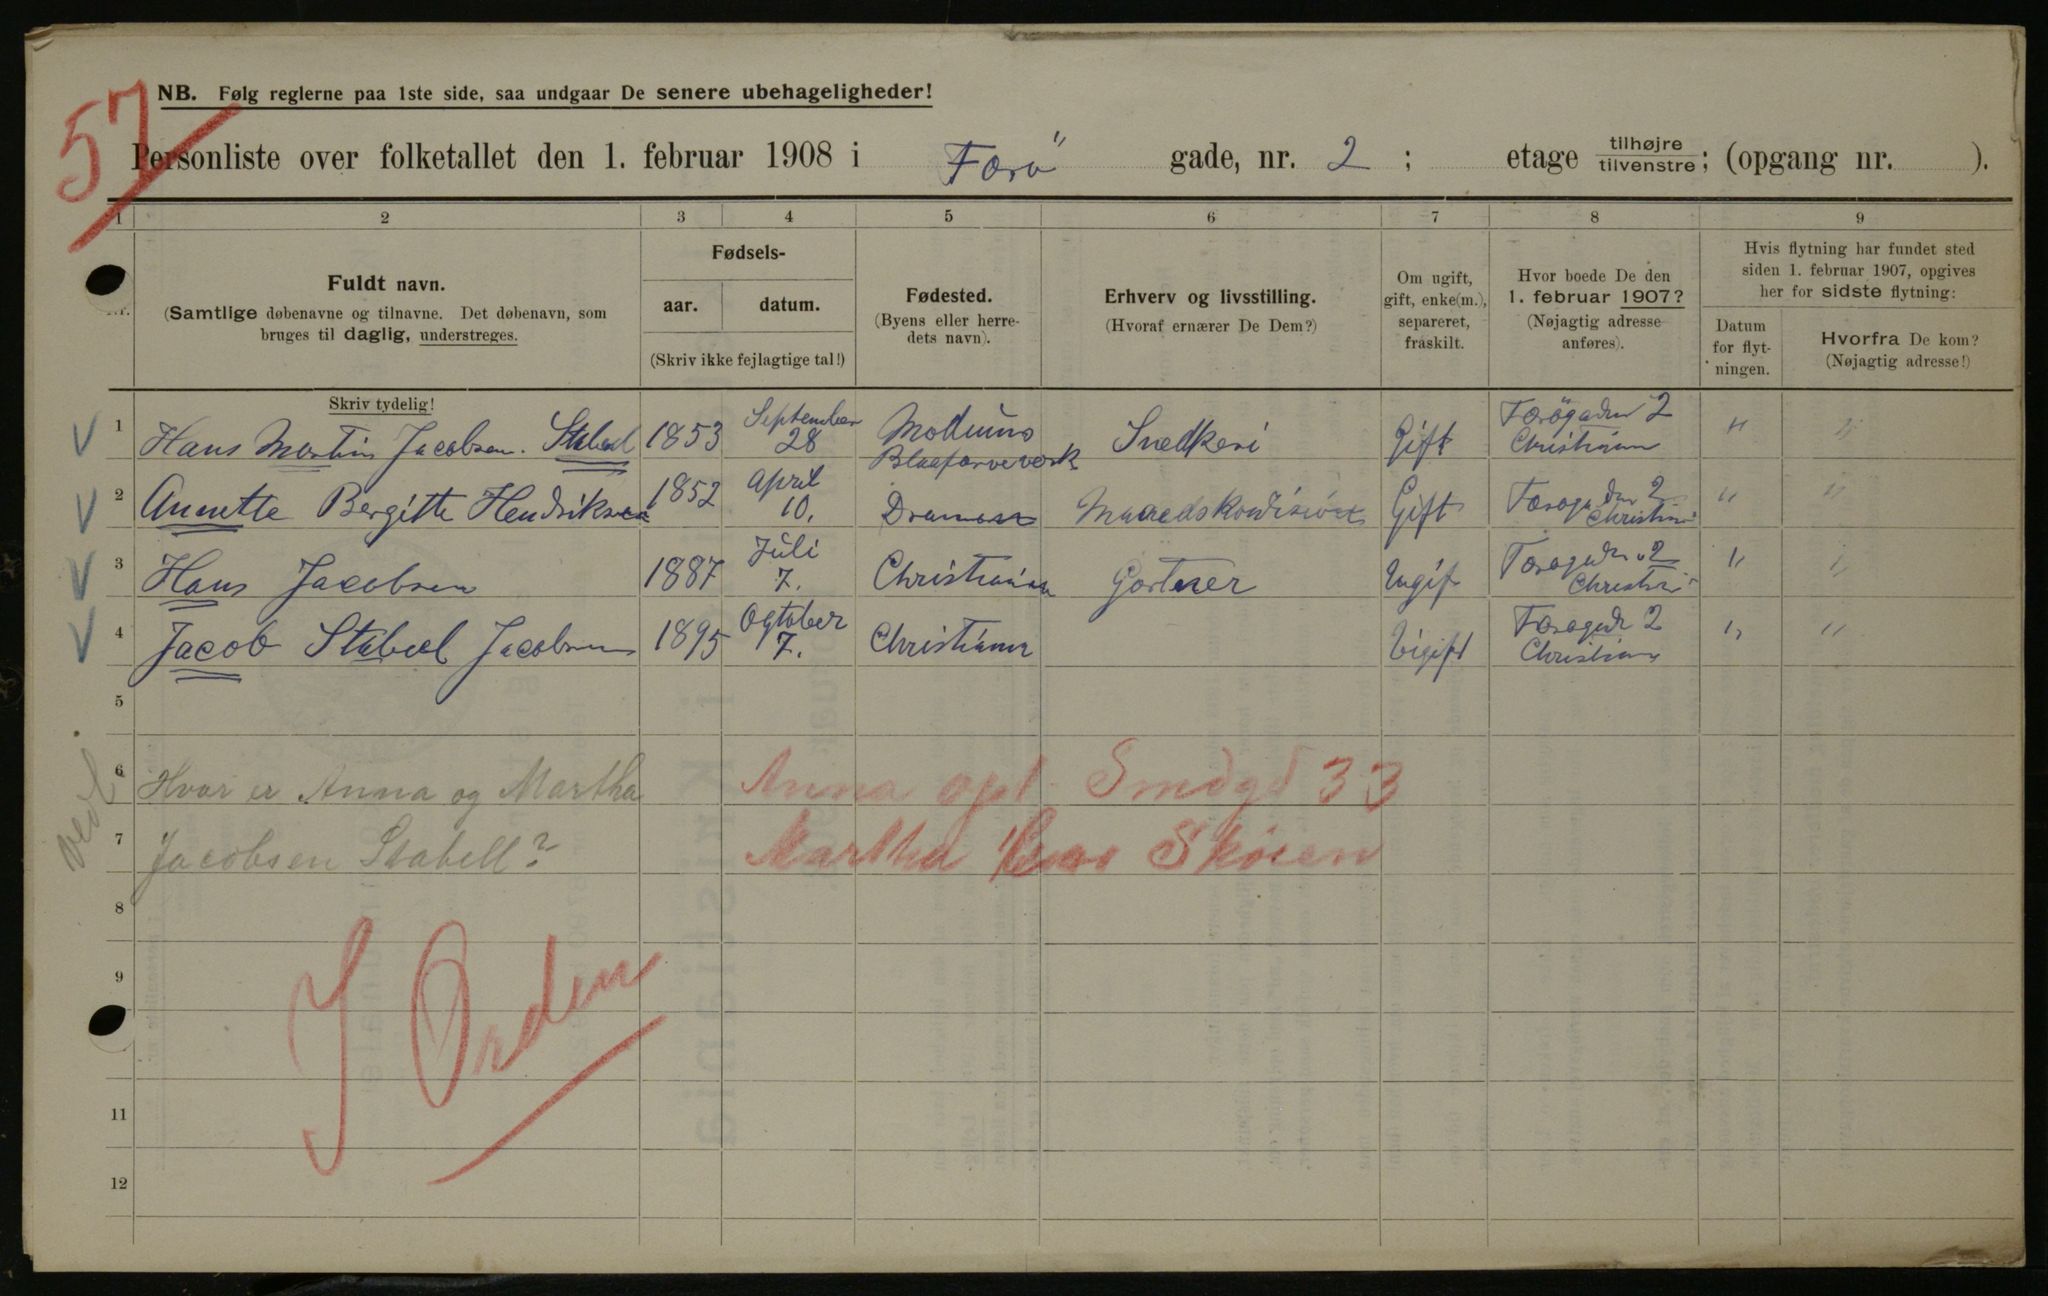 57
NB. Følg reglerne paa 1ste side, saa undgaar De senere ubehageligheder!
Personliste over folketallet den 1. februar 1908 i Færö gade, nr. 2 ; etage tilhøjre tilvenstre ; (opgang nr. ).
1 2 3 4 5 6 7 8 9
Nr.
Fuldt navn.
(Samtlige døbenavne og tilnavne. Det døbenavn, som
bruges til daglig, understreges.
Skriv tydelig!
Fødsels-
aar. datum.
(Skriv ikke fejlagtige tal!)
Fødested.
(Byens eller herre-
dets navn).
Erhverv og livsstilling.
(Hvoraf ernærer De Dem?)
Om ugift,
gift, enke(m.),
separeret,
fraskilt.
Hvor boede De den
1. februar 1907?
(Nøjagtig adresse
anføres).
Hvis flytning har fundet sted
siden 1. februar 1907, opgives
her for sidste flytning:
Datum
for flyt-
ningen.
Hvorfra De kom?
(Nøjagtig adresse!)
1 Hans Martin Jacobsen. Stabel 1853 September 28 Modums Blaafarveverk Snedkeri Gift Færögaden 2 Christiania " "
2 Annette Bergitte Hendriksen 1852 April 10. Dramen Gift Færøgaden 2 Christiania " "
3 Hans Jacobsen 1887 Juli 7. Christiania Gartner Ugift Færøgaden 2 Christiania " "
4 Jacob Stabel Jacobsen 1895 Ogtober 7. Christiania Ugift Færøgaden 2 Christiania " "
5
6 Hvor er Anna og Martha Anna opt. Smdgd 33
7 Jacobsen Stabell? Martha Skøien
8
9
I Orden
11
12